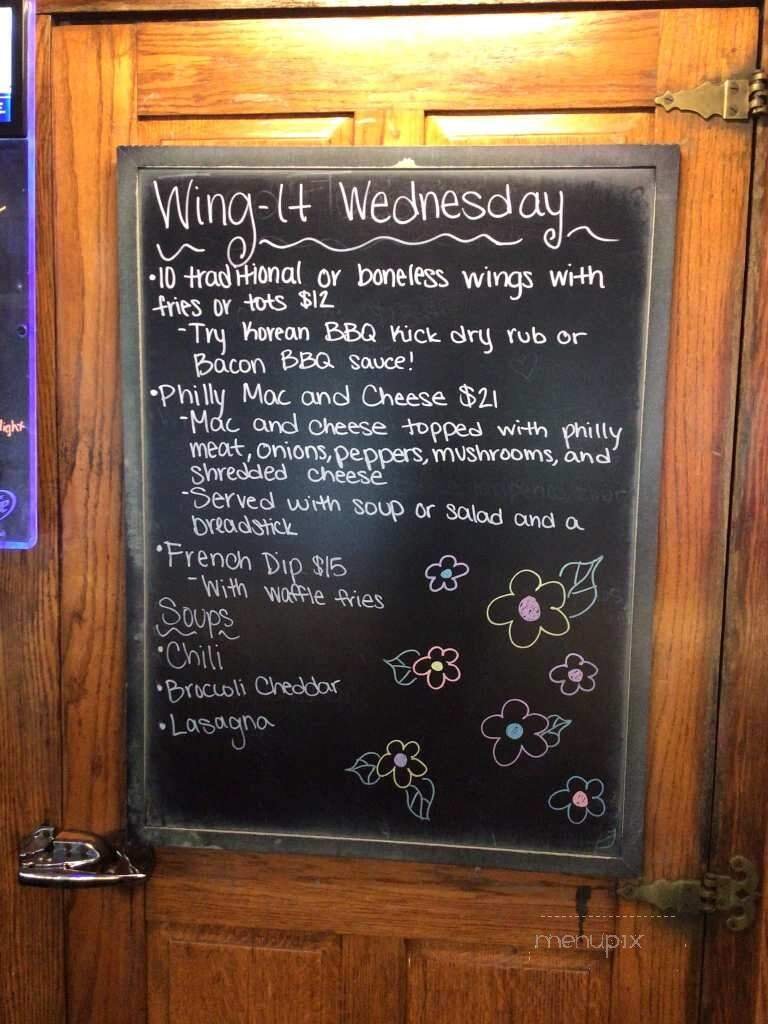 Wing-It Wednesday
•10 traditional or boneless wings with
fries or tots $12
-Try Korean BBQ Kick dry rub or
Bacon BBQ sauce!
•Philly Mac and Cheese $21
-Mac and cheese topped with philly
meat, onions, peppers, mushrooms, and
shredded cheese
-Served with soup or salad and a
breadstick
•French Dip $15
-With waffle fries
Soups
•Chili
•Broccoli Cheddar
•Lasagna
light
menupix